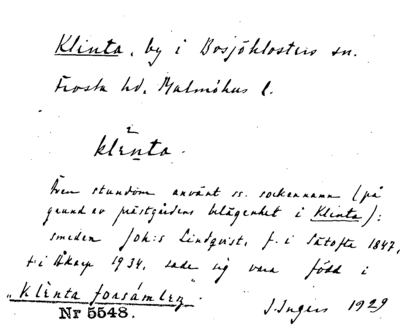 Klinta, by i Bosjöklosters sn.
Frosta hd, Malmöhus l.
klènta.
Även stundom använt ss. sockennamn (på
grund av prästgårdens belägenhet i Klinta):
smeden Joh:s Lindqvist, f. i Sätofta 1847,
† i Åkarp 1934, sade sig vara född i
"Klènta forsámleŋ".
Nr 5548. I. Ingers 1929